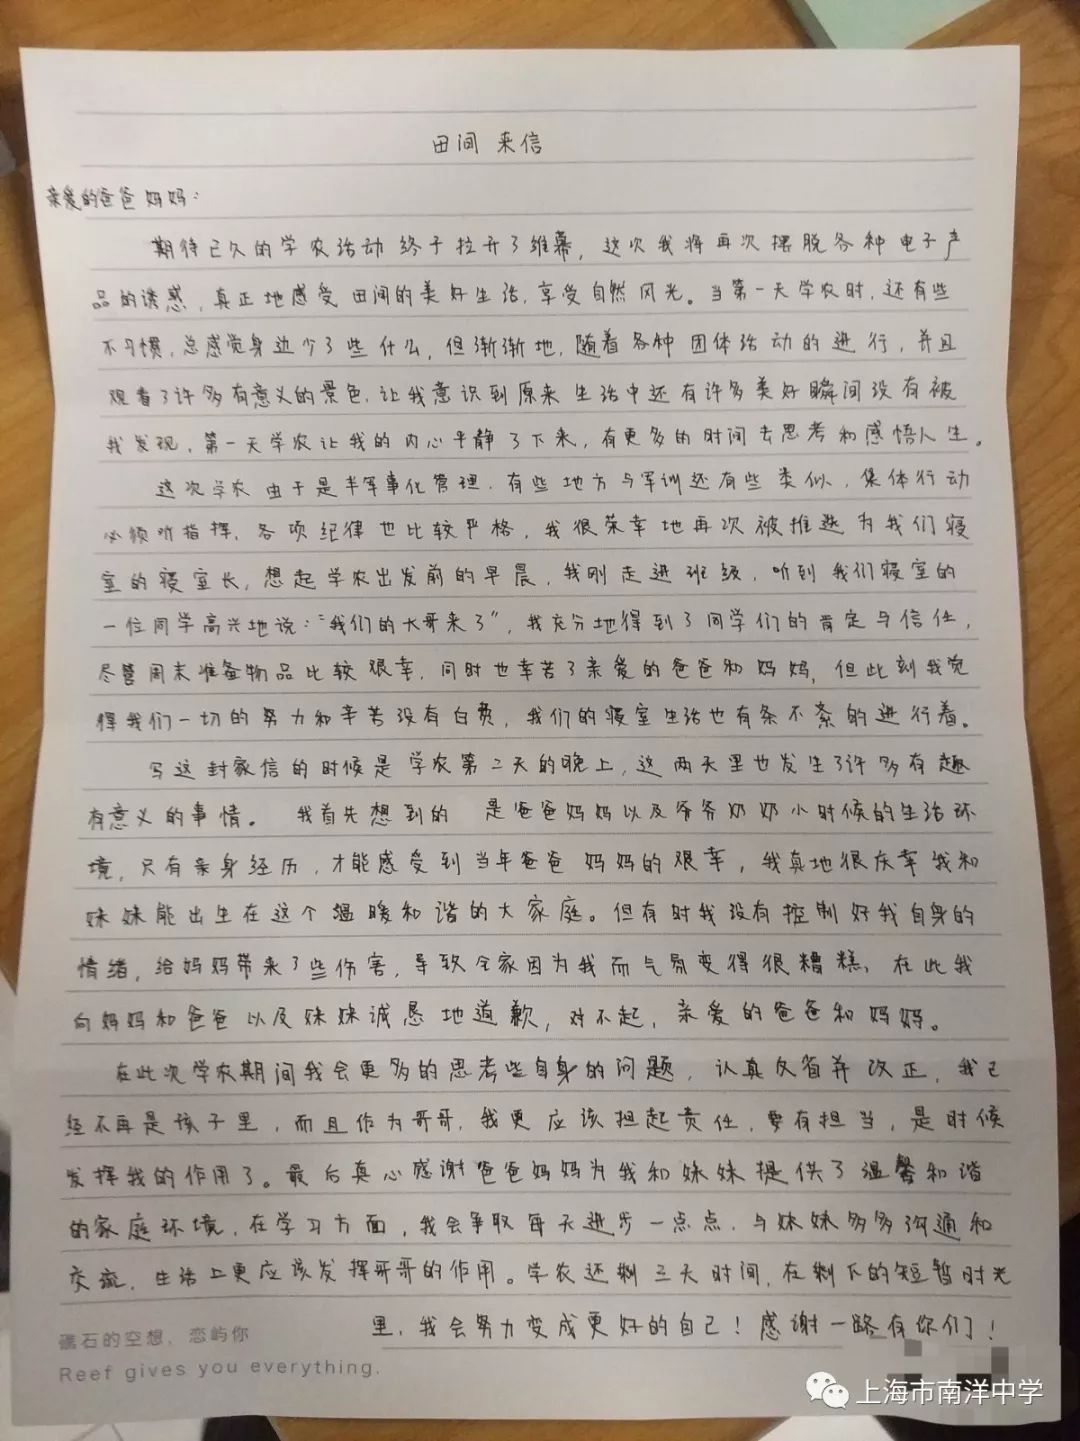 田间 来信
亲爱的爸爸妈妈：
期待已久的学农活动终于拉开了维幕，这次我将再次摆脱各种电子产
品的诱惑，真正地感受田间的美好生活，享受自然风光。当第一天学农时，还有些
不习惯，总感觉身边少了些什么，但渐渐地，随着各种团体活动的进行，并且
观看了许多有意义的景色，让我意识到原来生活中还有许多美好瞬间没有被
我发现，第一天学农让我的内心平静了下来，有更多的时间去思考和感悟人生。
这次学农由于是半军事化管理，有些地方与军训还有些类似，集体行动
必须听指挥，各项纪律也比较严格，我很荣幸地再次被推选为我们寝
室的寝室长，想起学农出发前的早晨，我刚走进班级，听到我们寝室的
一位同学高兴地说：“我们的大哥来了”，我充分地得到了同学们的肯定与信任，
尽管周末准备物品比较艰辛，同时也辛苦了亲爱的爸爸和妈妈，但此刻我觉
得我们一切的努力和辛苦没有白费，我们的寝室生活也有条不紊的进行着。
写这封家信的时候是学农第二天的晚上，这两天里也发生了许多有趣
有意义的事情。 我首先想到的 是爸爸妈妈以及爷爷奶奶小时候的生活环
境，只有亲身经历，才能感受到当年爸爸妈妈的艰辛，我真地很庆幸我和
妹妹能出生在这个温暖和谐的大家庭。但有时我没有控制好我自身的
情绪，给妈妈带来了些伤害，导致全家因为我而气氛变得很糟糕，在此我
向妈妈和爸爸以及妹妹诚恳地道歉，对不起，亲爱的爸爸和妈妈。
在此次学农期间我会更多的思考些自身的问题，认真反省并改正，我已
经不再是孩子里，而且作为哥哥，我更应该担起责任，要有担当，是时候
发挥我的作用了。最后真心感谢爸爸妈妈为我和妹妹提供了温馨和谐
的家庭环境，在学习方面，我会争取每天进步一点点，与妹妹多多沟通和
交流，生活上更应该发挥哥哥的作用。学农还剩三天时间，在剩下的短暂时光
里，我会努力变成更好的自己！感谢一路有你们！
礁石的空想，恋屿你
Reef gives you everything.
上海市南洋中学